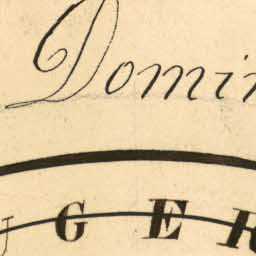 Domin
UGER